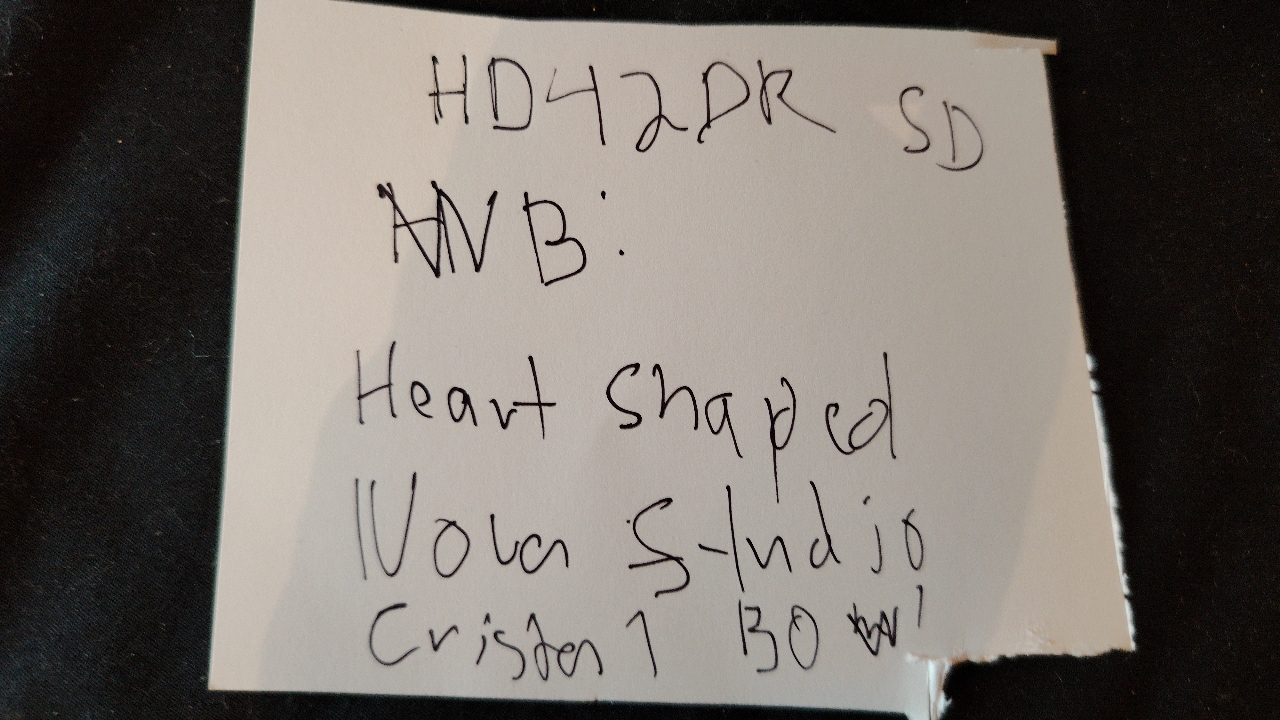 HD42DR SD
NB:
Heart shaped
Nova Studio
Cristal Bowl